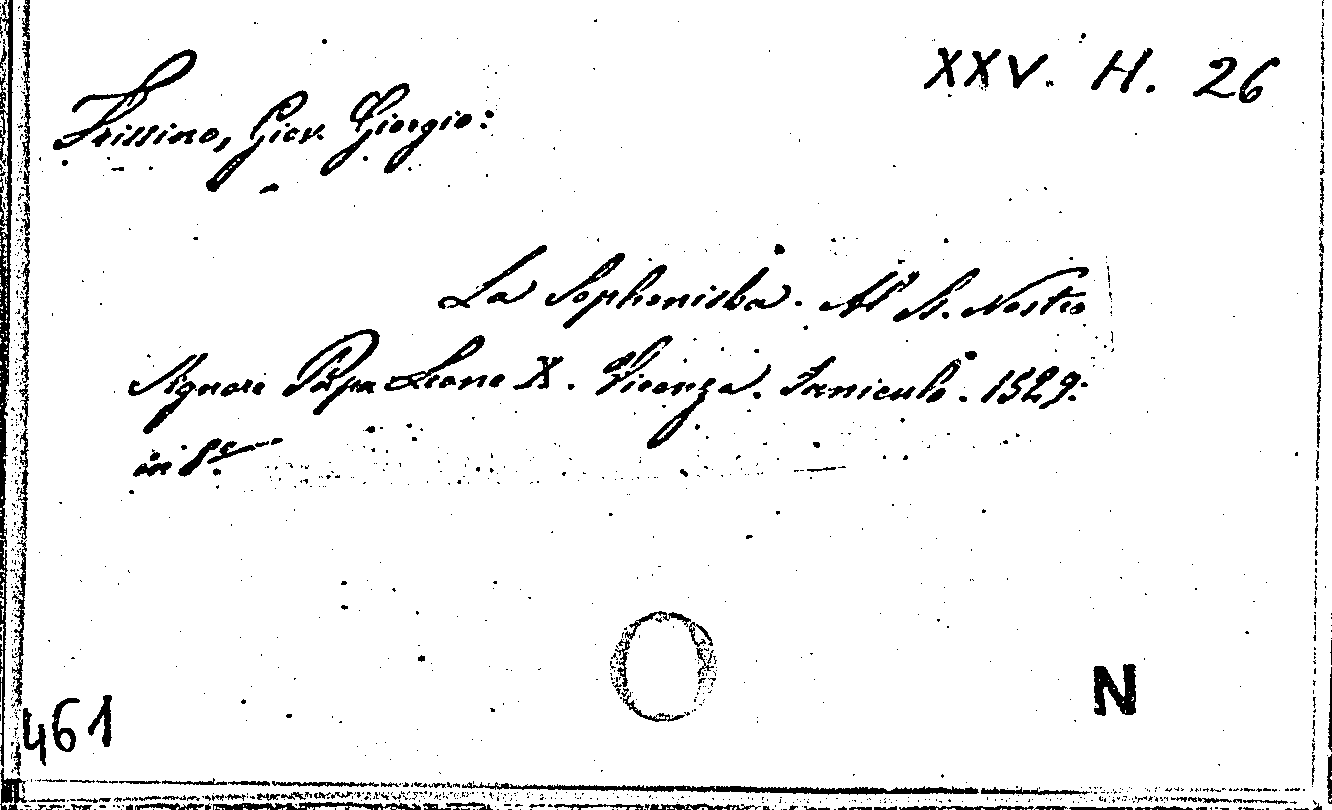 XXV. H. 26
Trissino, Giov. Giorgio:
La Sophonisba. Al S. Nostro
Signore Papa Leone X. Vicenza. Janiculo. 1529.
in 8º
461
N